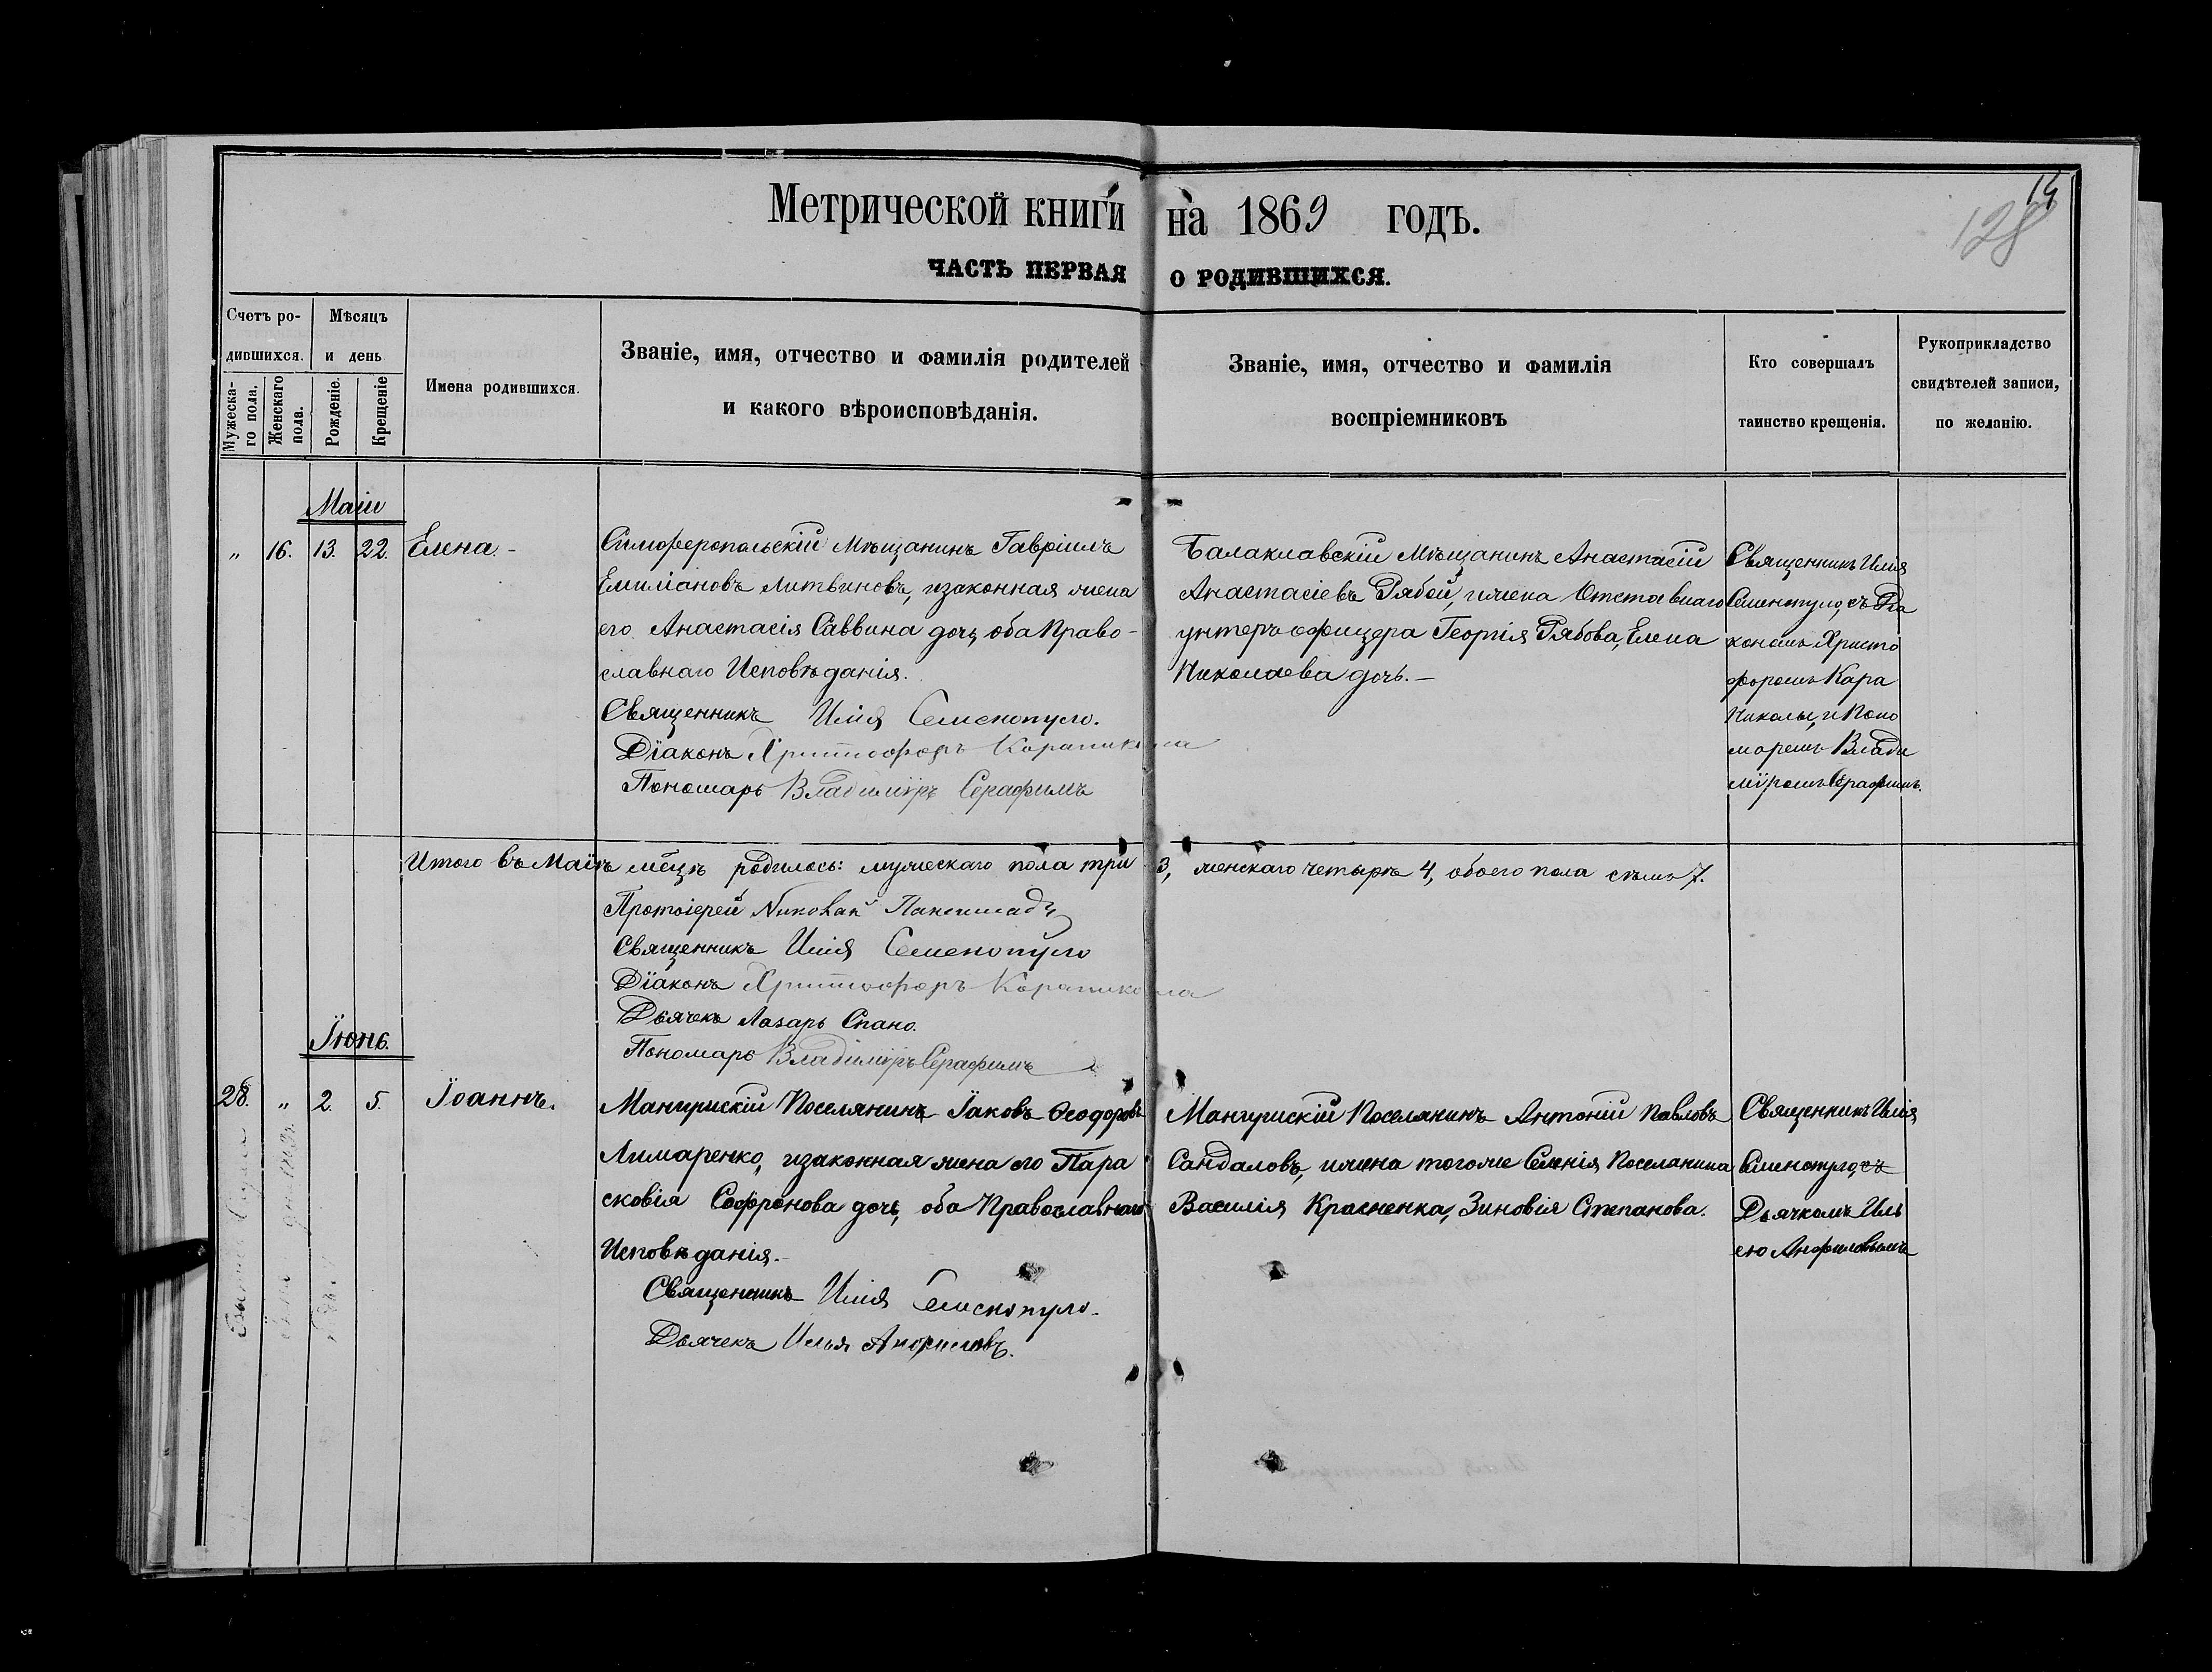 Метрической книги на 1869 годъ.
14
128
ЧАСТЬ ПЕРВАЯ О РОДИВШИХСЯ.
Счетъ ро-
дившихся.
Мужеска-
го пола.
Женскаго
пола.
Мѣсяцъ
и день
Рожденіе.
Крещеніе
Имена родившихся.
Званіе, имя, отчество и фамилія родителей
и какого вѣроисповѣданія.
Званіе, имя, отчество и фамилія
воспріемниковъ
Кто совершалъ
таинство крещенія.
Рукоприкладство
свидѣтелей записи,
по желанію.
Маіи
„ 16. 13. 22. Елена. -
Симферопольскій Мѣщанинъ Гавріилъ
Емиліановъ Литвиновъ, изаконная жена
его Анастасія Саввина дочь, оба Право-
славнаго Исповѣданія.
Священникъ Илія Семенопуло.
Діаконъ Христофоръ Караникола
Пономарь Владиміръ Серафимъ
Балаклавскій Мѣщанинъ Анастасій
Анастасіевъ Рябой, ижена Отставнаго
унтеръ офицера Георгія Рябова, Елена
Николаева дочь. -
Священникъ Илія
Семенопуло, съ Діа
кономъ Христо
форомъ Кара
Николы, и Поно
маремъ Влади
міромъ Серафимъ.
Итого въ Маіѣ мѣцѣ родилось: мужескаго пола три 3, женскаго четыре 4, обоего пола семь 7.
Протоіерей Николай
Священникъ Илія Семенопуло
Діаконъ Христофоръ Караникола
Дьячекъ Лазарь Спано.
Пономарь Владиміръ Серафимъ
Іюнь.
28. „ 2. 5. Іоаннъ.
Мангушскій Поселянинъ Іаковъ Ѳеодоровъ
Лимаренко, изаконная жена его Пара
сковія Софронова дочь, оба Православнаго
Исповѣданія. -
Священникъ Илія Семенопуло.
Дьячекъ Илья Анфиловъ.
Мангушскій Поселянинъ Антоній Павловъ
Сандаловъ, ижена тогоже Селенія Поселянина
Василія Красненка, Зиновія Степанова.
Священникъ Илія
Семенопуло, съ
Дьячкомъ Иль
ею Анфиловымъ